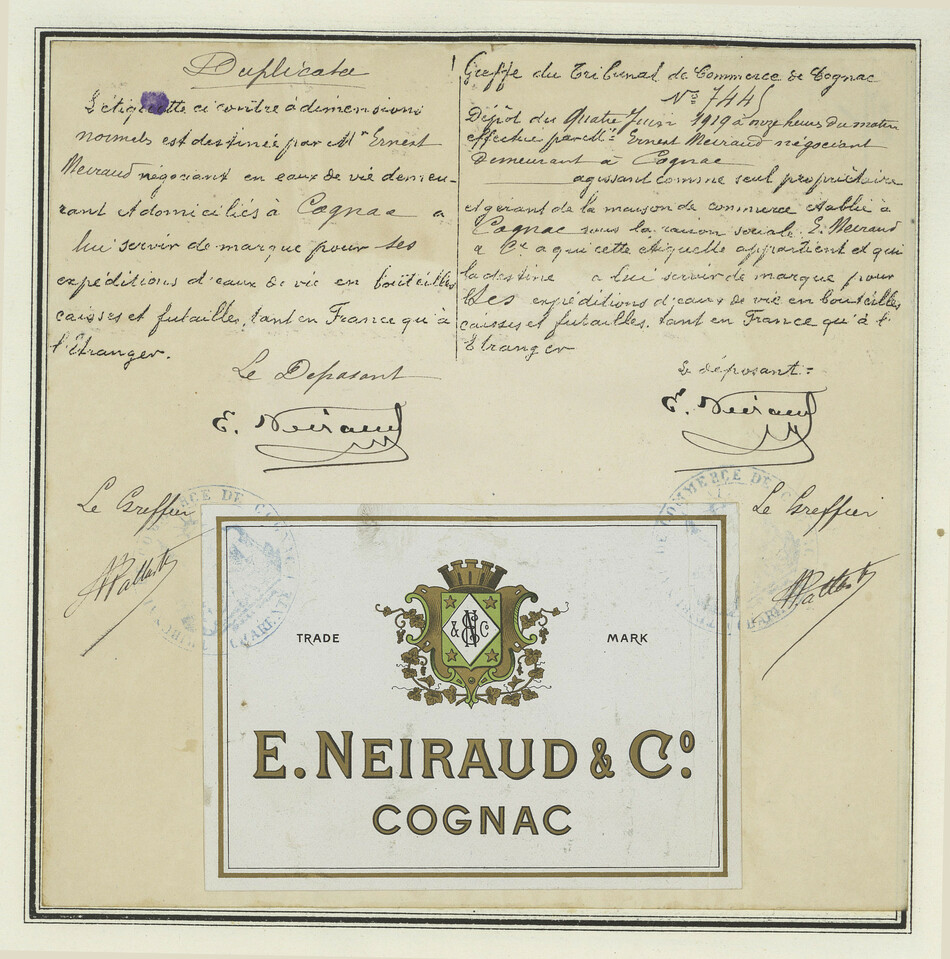 Duplicata
L'étiquette ci contre à dimensions
normales est destinée par Mr Ernest
Neiraud négociant en eaux de vie demeu-
rant et domiciliés à Cognac a
lui servir de marque pour ses
expéditions d'eaux de vie en bouteilles
caisses et futailles, tant en France qu'à
l'Etranger.
Le Déposant
E. Neiraud
Le Greffier
Greffe du Tribunal de Commerce de Cognac
No 7445
Dépôt du Quatre Juin 1919 à onze heures du matin
effectué par Mr Ernest Neiraud négociant
demeurant à Cognac
agissant comme seul propriétaire
et gérant de la maison de commerce établie à
Cognac sous la raison sociale. E. Neiraud
& Ce a qui cette étiquette appartient et qui
la destine a lui servir de marque pour
ses expéditions d'eaux de vie en bouteilles
caisses et futailles, tant en France qu'à l'
Etranger
Le déposant
E. Neiraud
Le Greffier
COMMERCE DE
TRADE
MARK
N & Co
E. NEIRAUD & Co.
COGNAC